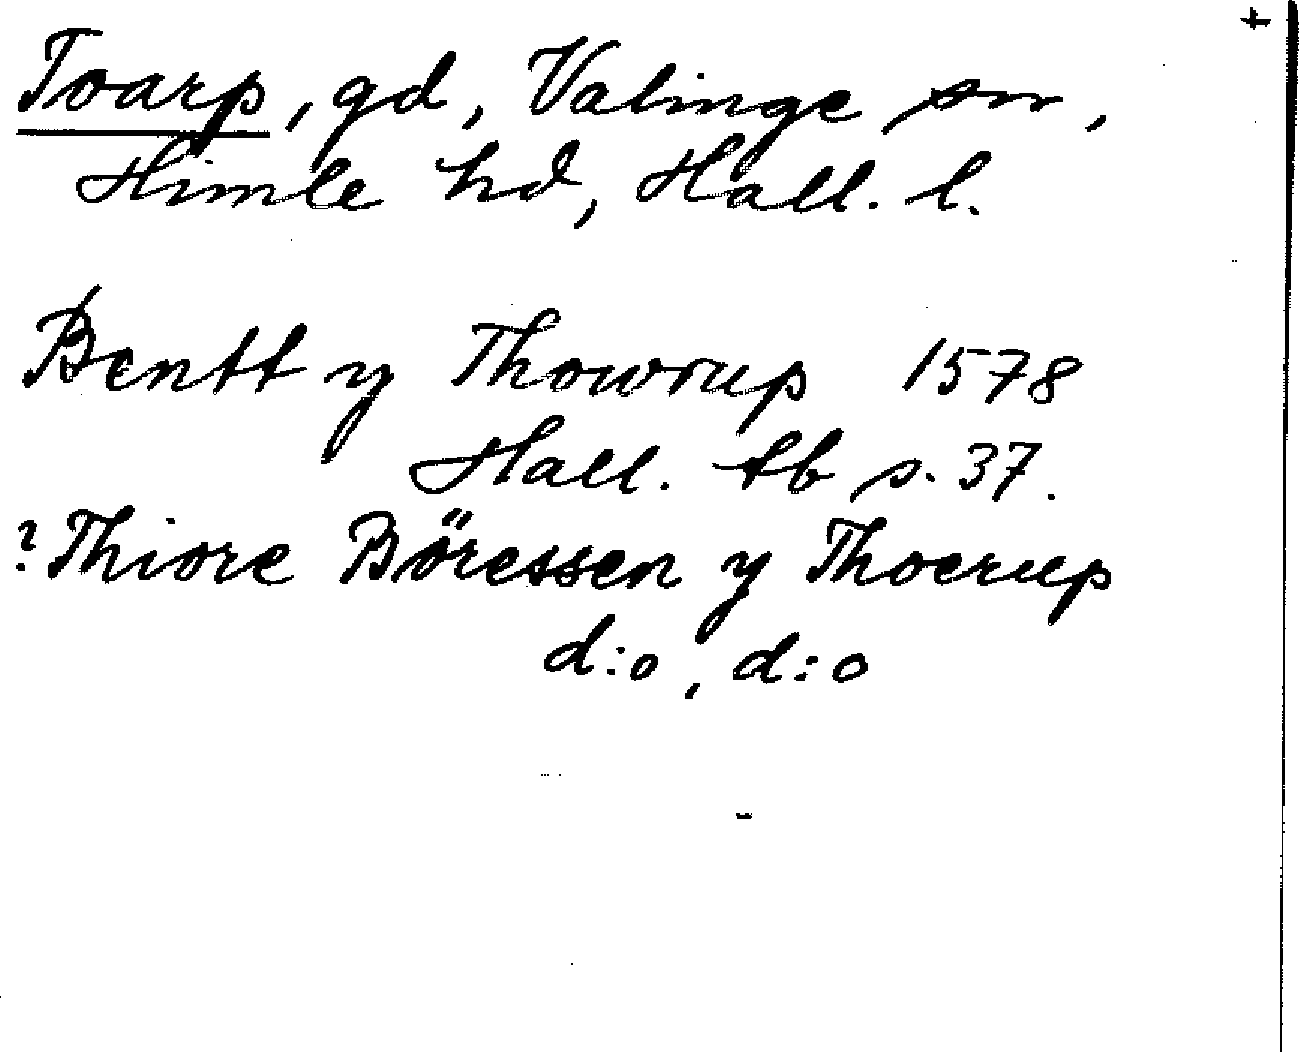 +
Toarp, gd, Valinge sn,
Himle hd, Hall. l.
Bentt y Thowrup 1578
Hall. tb s. 37.
? Thiore Böressen y Thoerup
d:o, d:o